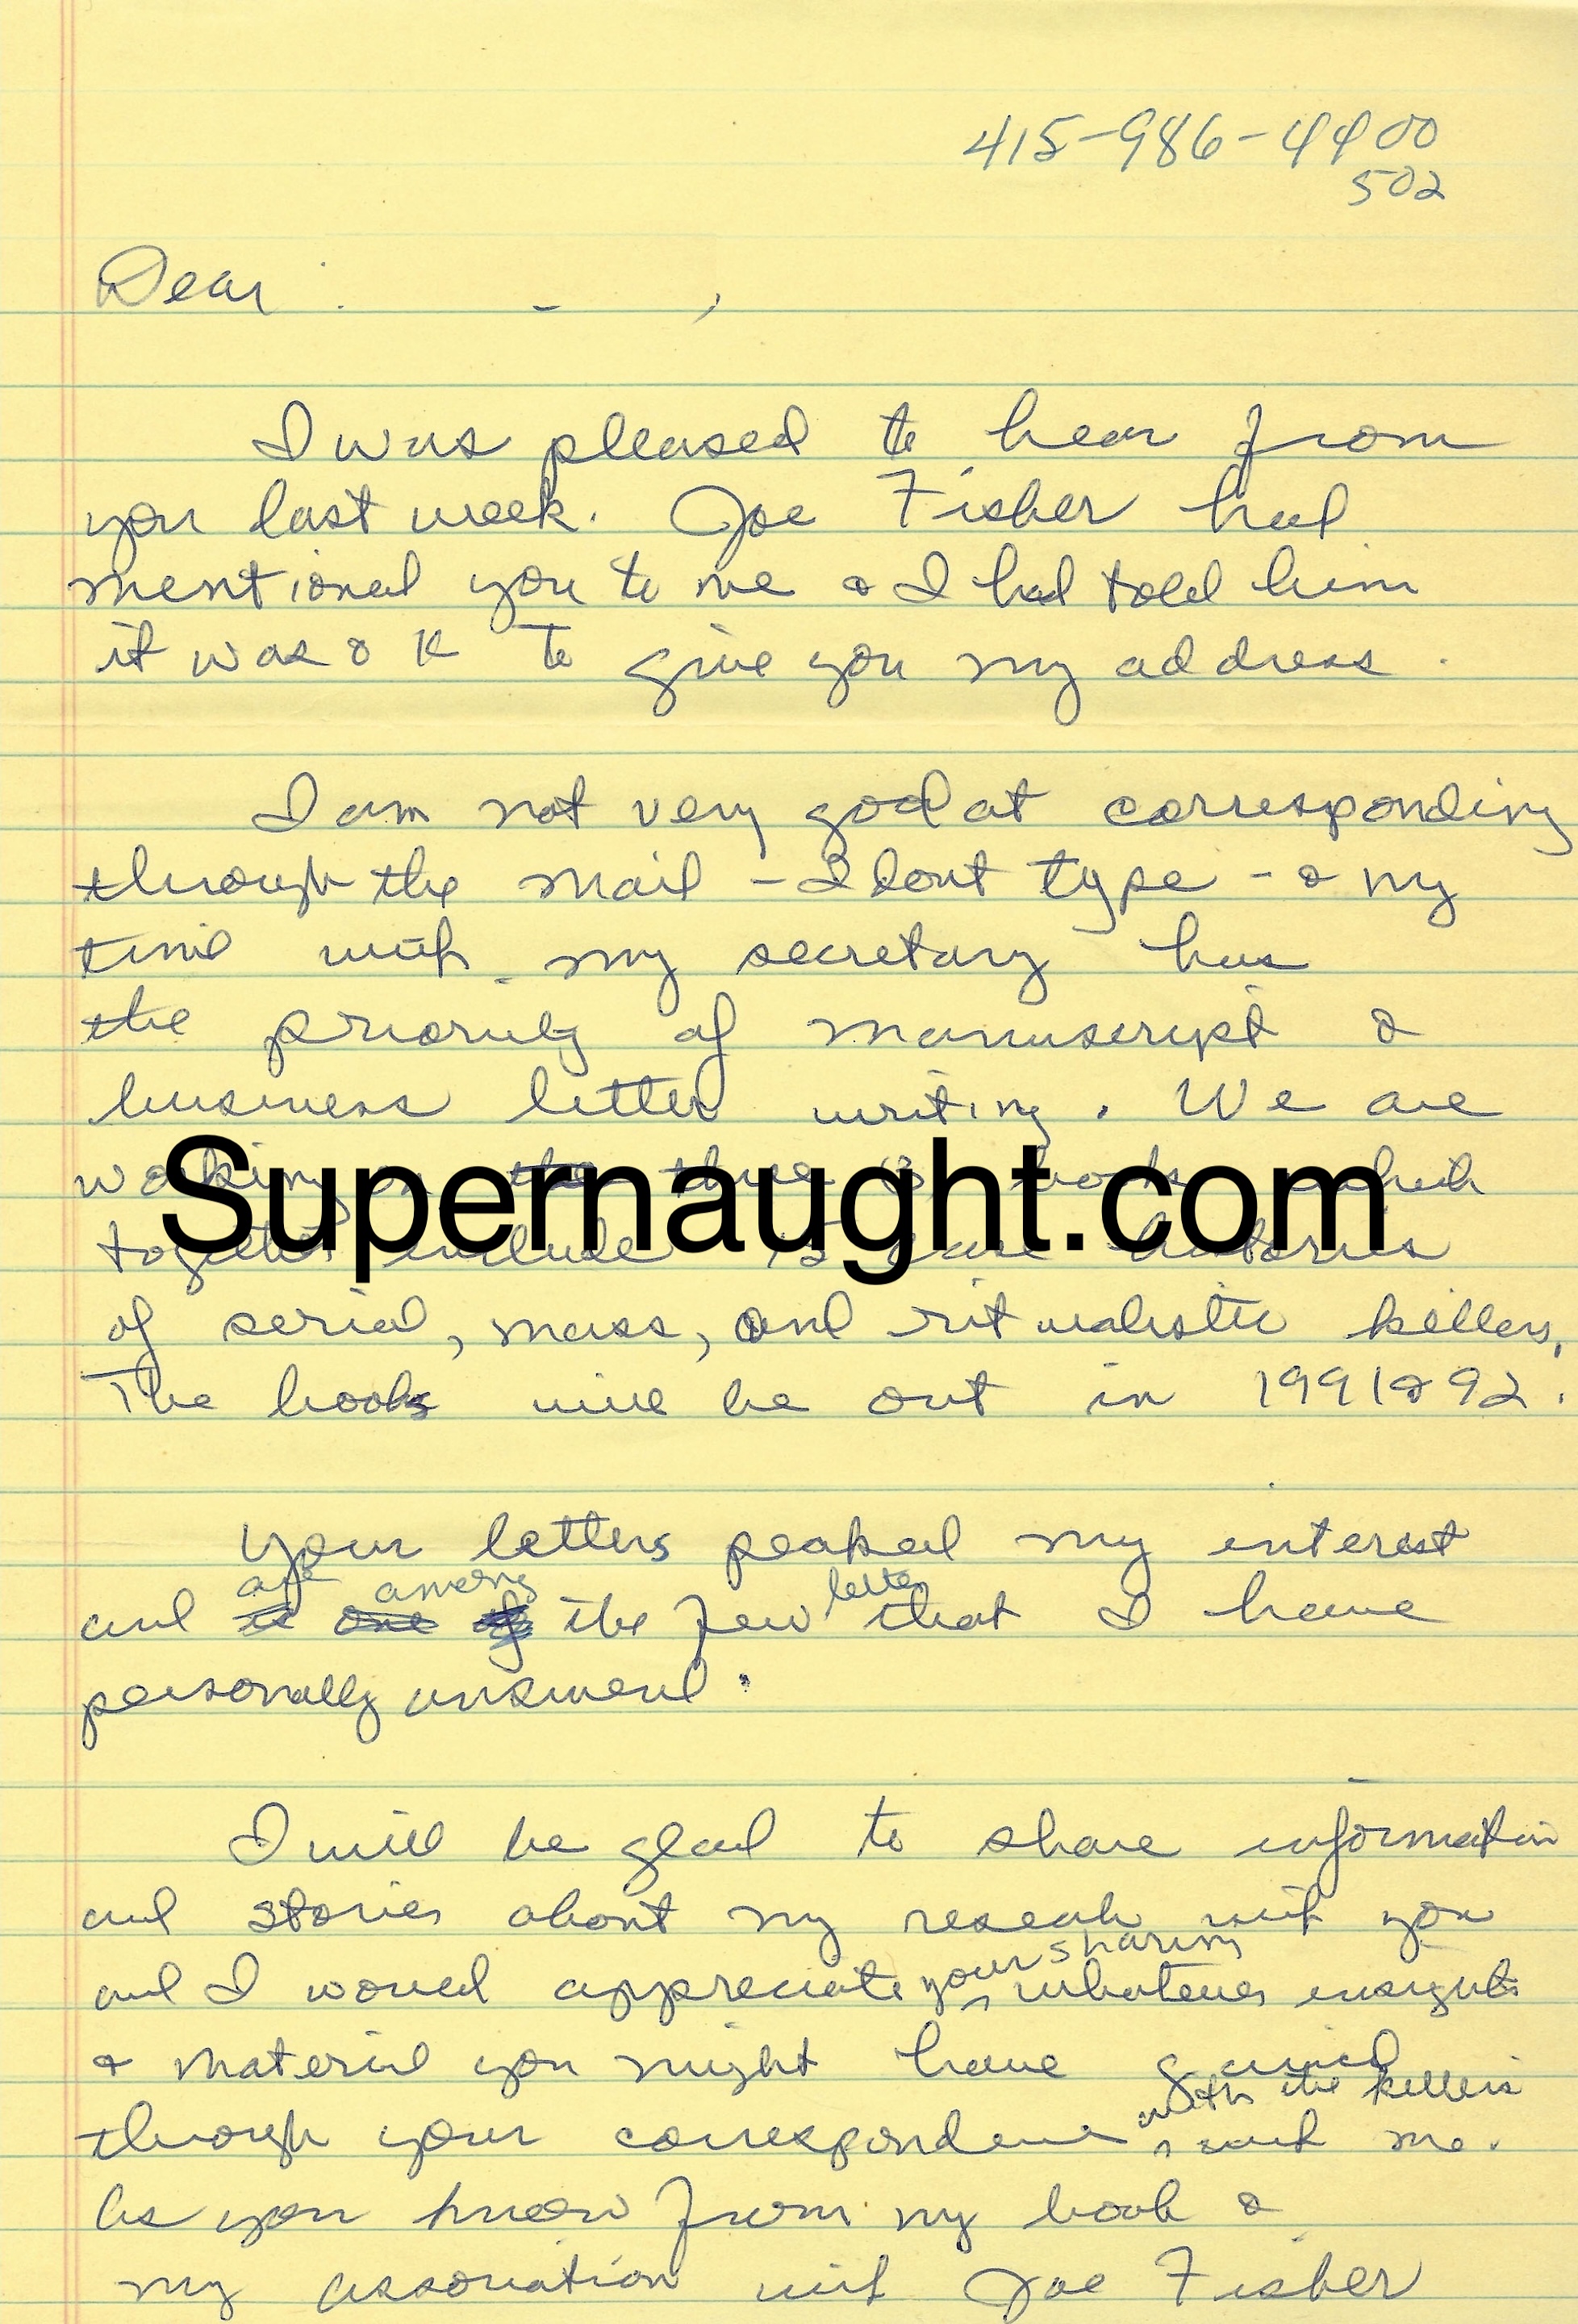 415-986-4400
502
Dear ,
I was pleased to hear from
you last week. Joe Fisher had
mentioned you to me & I had told him
it was OK to give you my address.
I am not very good at corresponding
through the mail - I dont type - & my
time with my secretary has
the priority of manuscript &
business letter writing. We are
working on the three (3) books which
together include 15 case histories
of serial, mass, and ritualistic killers.
The books will be out in 1991 & 92.
Supernaught.com
Your letters peaked my interest
are among letters
and is one of the few that I have
personally answered.
I will be glad to share information
and stories about my research with you
your sharing
and I would appreciate whatever insights
& material you might have gained
with the killers
through your correspondence with me.
As you know from my book &
my association with Joe Fisher